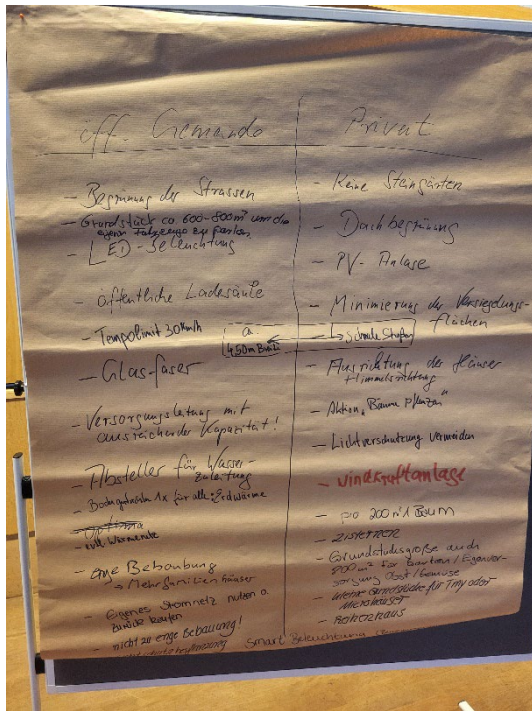 öff. Gemeinde
- Begrünung der Strassen
- Grundstück ca. 600-800m² um die
eigenen Fahrzeuge zu parken
- LED-Beleuchtung
- öffentliche Ladesäule
- Tempolimit 30 Km/h
- Glasfaser
- Versorgungsleitung mit
ausreichender Kapazität!
- Absteller für Wasser-
zuleitung
1x für alle: Erdwärme
- enge Bebauung
→ Mehrfamilienhäuser
- Eigenes Stromnetz nutzen o.
zurück kaufen
- nicht zu enge Bebauung!
Privat
- Keine Steingärten
- Dachbegrünung
- PV-Anlage
- Minimierung der Versieglungs-
flächen
→ Schmale Straßen
4,50m
- Ausrichtung der Häuser
Himmelsrichtung
- Aktion "Bäume pflanzen"
- Lichtverschmutzung vermeiden
- Windkraftanlage
- pro 200 m² 1 Baum
- Zisternen
- Grundstücksgröße auch
für Garten / Eigenver-
sorgung Obst/Gemüse
Grundstücke für Tiny oder
Microhäuser
- Reihenhaus
Smart Beleuchtung